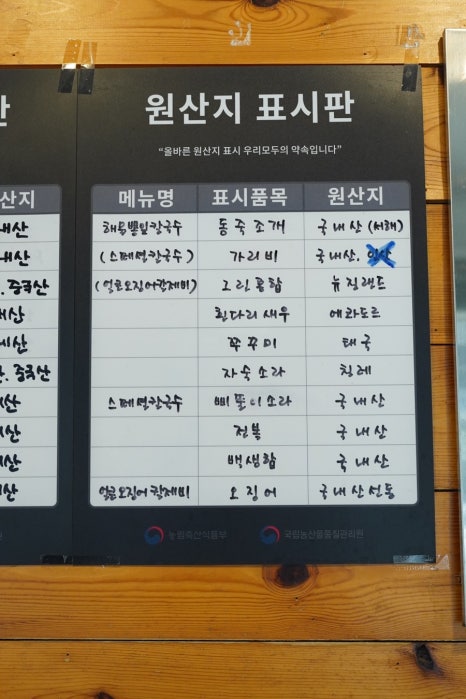 원산지 표시판
"올바른 원산지 표시 우리모두의 약속입니다"
메뉴명 표시품목 원산지
해물통일칼국수 동죽조개 국내산 (서해)
(스페셜칼국수) 가리비 국내산.
(얼큰오징어칼제비) 그린홍합 뉴질랜드
흰다리새우 에콰도르
쭈꾸미 태국
자숙소라 칠레
스페셜칼국수 삐뚤이소라 국내산
전복 국내산
백생합 국내산
얼큰오징어칼제비 오징어 국내산선동
농림축산식품부 국립농산물품질관리원
산지
내산
내산
, 중국산
내산
내산
산, 중국산
산
산
산
산